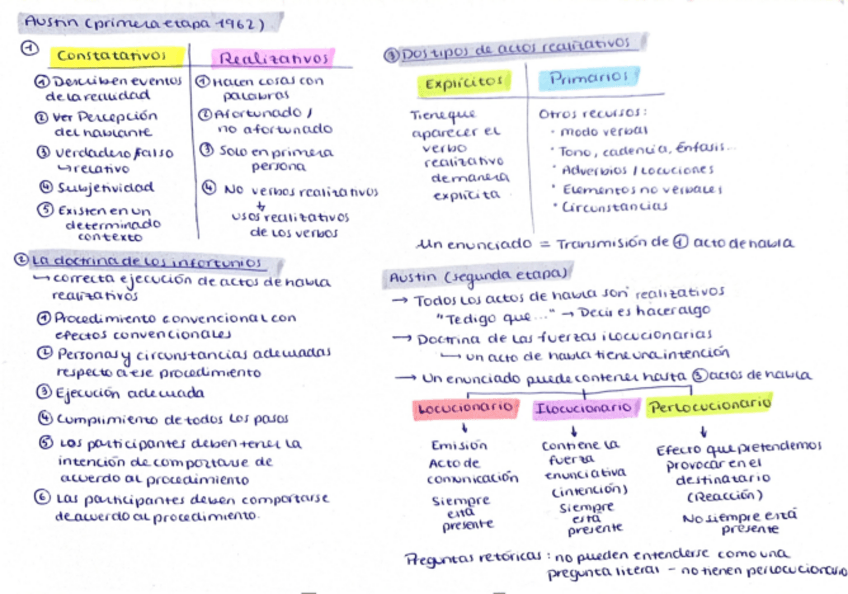 Austin (primera etapa 1962)
① Constatativos
Realizativos
① Describen eventos
de la realidad
② Ver Percepción
del hablante
③ Verdadero/falso
↳ relativo
④ Subjetividad
⑤ Existen en un
determinado
contexto
① Hacen cosas con
palabras
② Afortunado /
no afortunado
③ Solo en primera
persona
④ No verbos realizativos
↓
usos realizativos
de los verbos
② La doctrina de los infortunios
↳ correcta ejecución de actos de habla
realizativos
① Procedimiento convencional con
efectos convencionales
② Personas y circunstancias adecuadas
respecto a ese procedimiento
③ Ejecución adecuada
④ Cumplimiento de todos los pasos
⑤ Los participantes deben tener la
intención de comportarse de
acuerdo al procedimiento
⑥ Las participantes deben comportarse
de acuerdo al procedimiento.
③ Dos tipos de actos realizativos
Explícitos
Primarios
Tiene que
aparecer el
verbo
realizativo
de manera
explícita
Otros recursos:
· modo verbal
· Tono, cadencia, énfasis...
· Adverbios / Locuciones
· Elementos no verbales
· Circunstancias
Un enunciado = Transmisión de ① acto de habla
Austin (segunda etapa)
→ Todos los actos de habla son realizativos
"Te digo que..." → Decir es hacer algo
→ Doctrina de las fuerzas ilocucionarias
↳ un acto de habla tiene una intención
→ Un enunciado puede contener hasta ③ actos de habla
Locucionario
Ilocucionario
Perlocucionario
↓
Emisión
Acto de
comunicación
Siempre
está
presente
↓
Contiene la
fuerza
enunciativa
(intención)
Siempre
está
presente
↓
Efecto que pretendemos
provocar en el
destinatario
(Reacción)
No siempre está
presente
Preguntas retóricas: no pueden entenderse como una
pregunta literal - no tienen perlocucionario